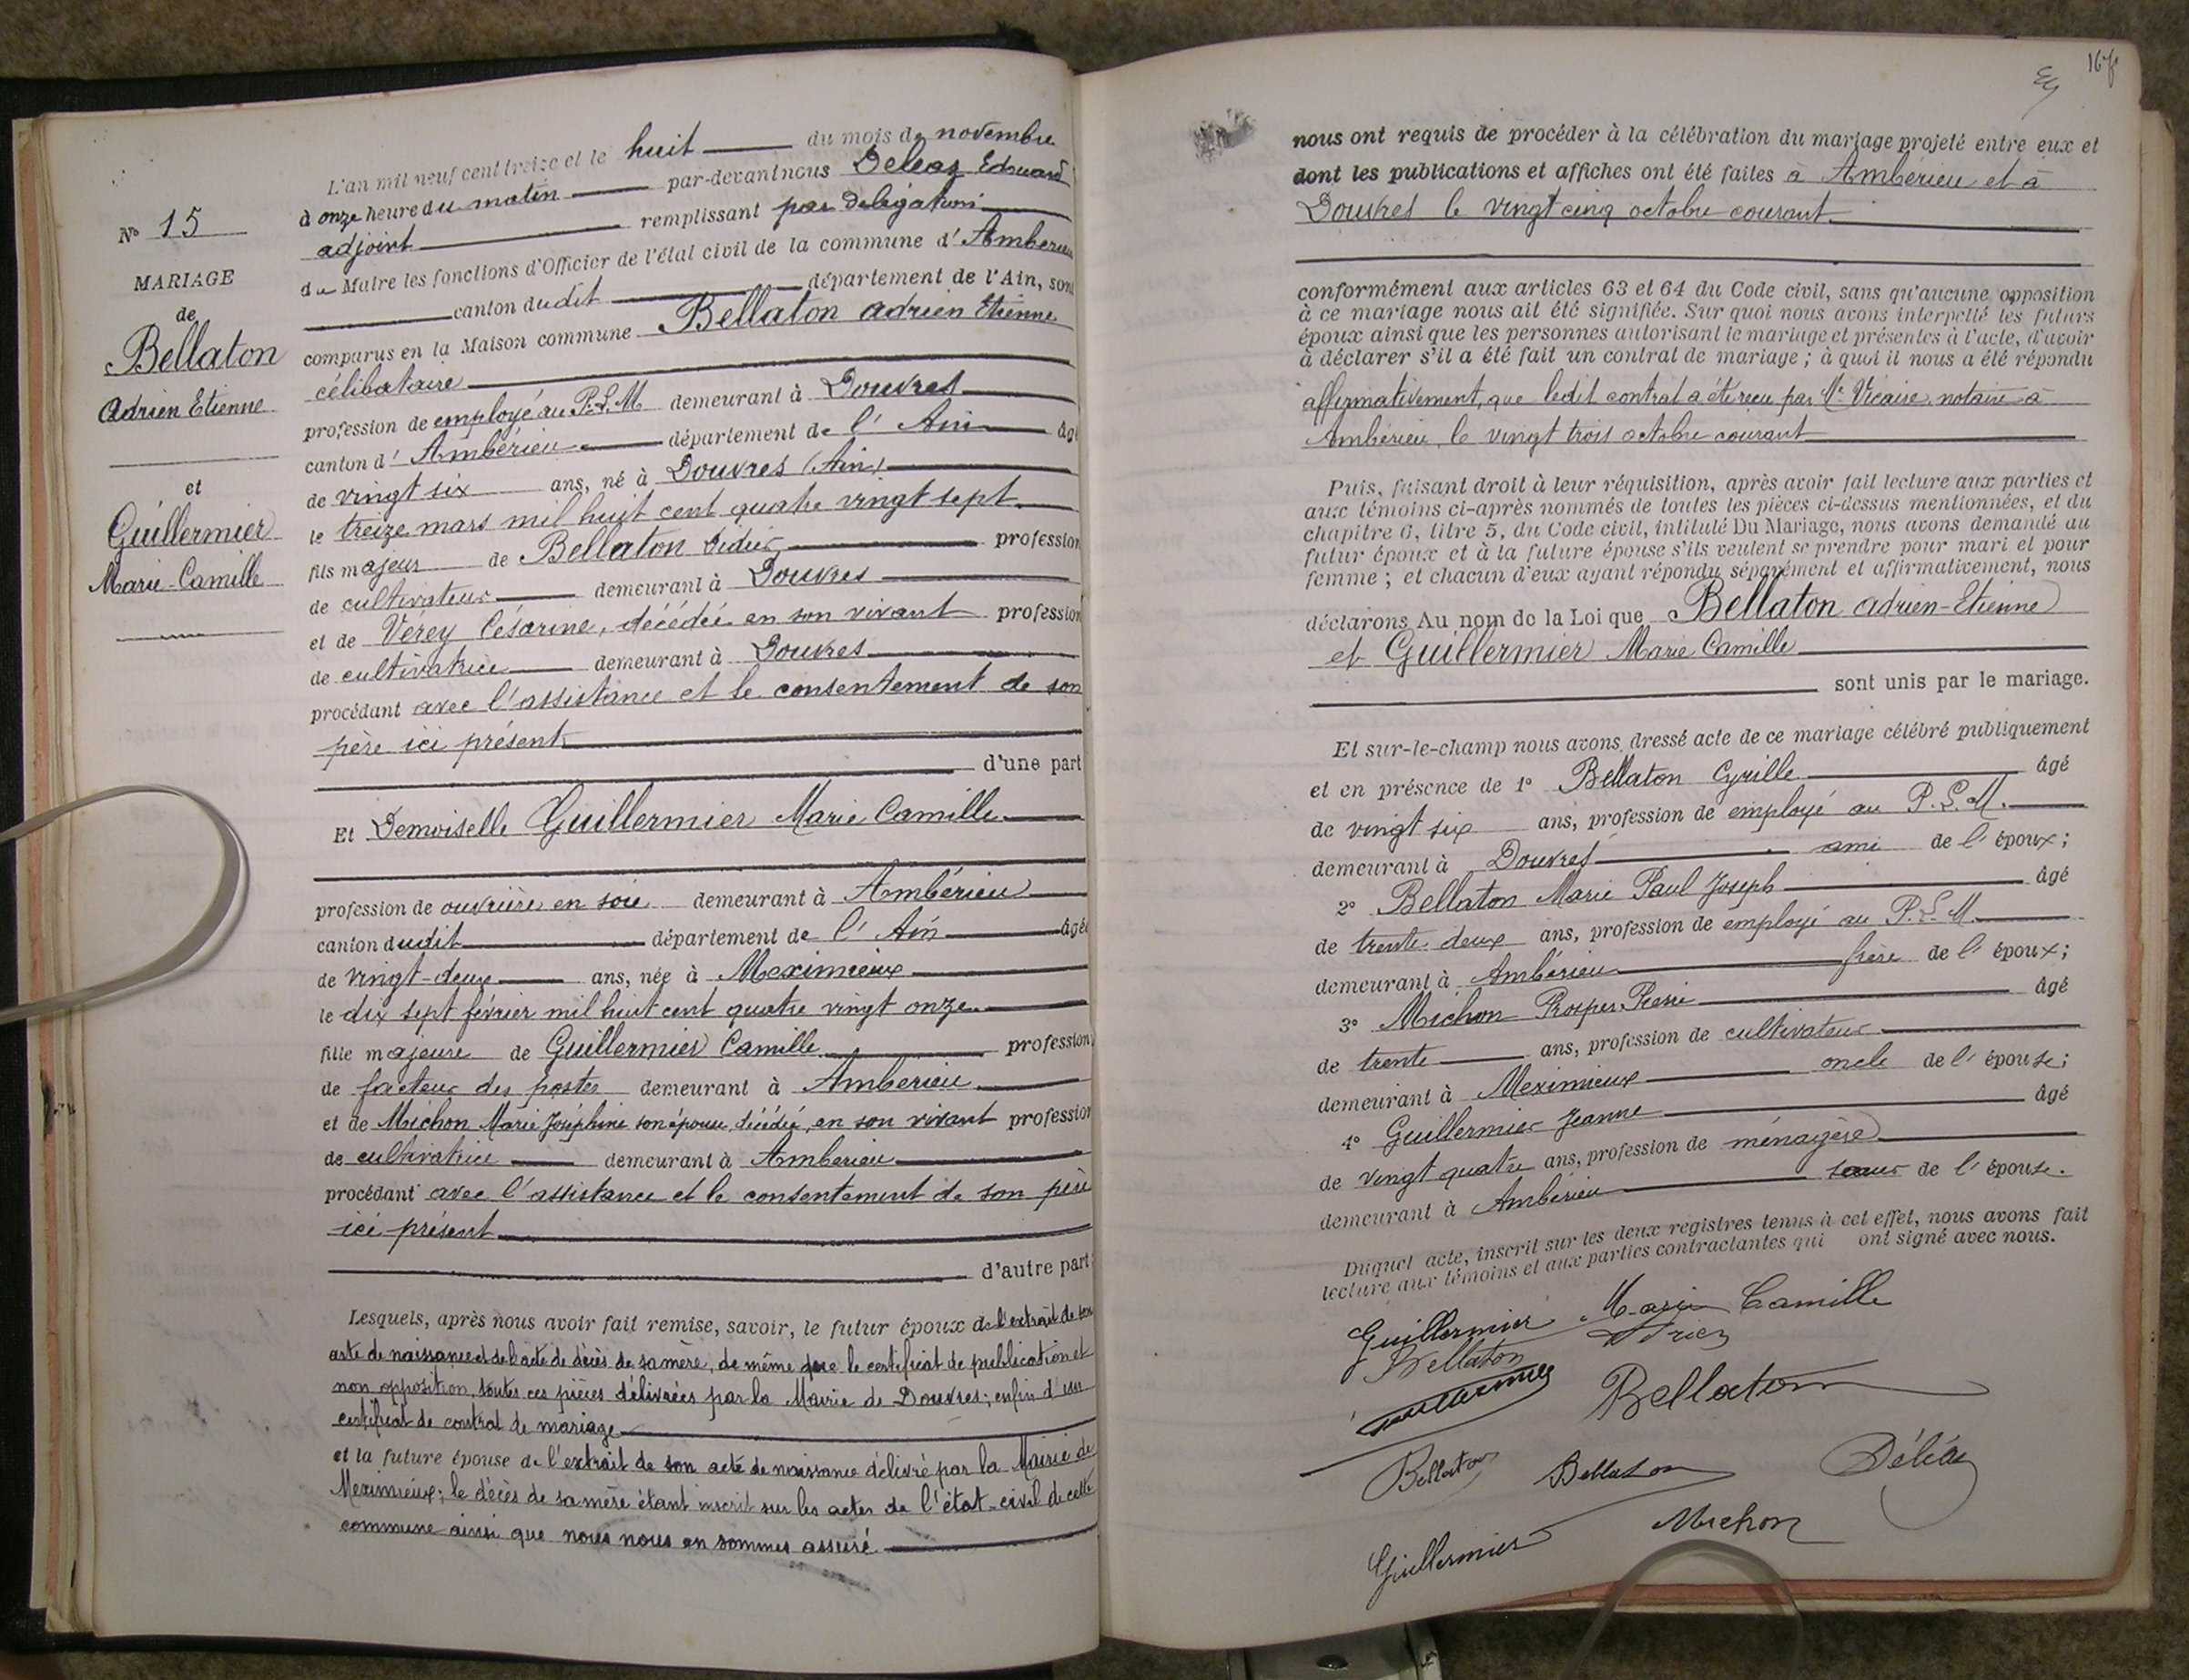 N° 15
MARIAGE
de
Bellaton
Adrien Etienne
et
Guillermier
Marie-Camille
L'an mil neuf cent treize et le huit du mois de novembre
à onze heure du matin par-devant nous Deleaz Edouard
adjoint remplissant par délégation
du Maire les fonctions d'Officier de l'état civil de la commune d'Ambérieu
canton dudit département de l'Ain, sont
comparus en la Maison commune Bellaton Adrien Etienne
célibataire
profession de employé au P.L.M demeurant à Douvres
canton d'Ambérieu département de l'Ain âgé
de vingt six ans, né à Douvres (Ain)
le treize mars mil huit cent quatre vingt sept
fils majeur de Bellaton Didier profession
de cultivateur demeurant à Douvres
et de Vérey Césarine, décédée en son vivant profession
de cultivatrice demeurant à Douvres
procédant avec l'assistance et le consentement de son
père ici présent
d'une part
Et Demoiselle Guillermier Marie Camille
profession de ouvrière en soie demeurant à Ambérieu
canton dudit département de l'Ain âgée
de vingt-deux ans, née à Meximieux
le dix sept février mil huit cent quatre vingt onze
fille majeure de Guillermier Camille profession
de facteur des postes demeurant à Amberieu
et de Michon Marie Joséphine son épouse, décédée, en son vivant profession
de cultivatrice demeurant à Amberieu
procédant avec l'assistance et le consentement de son père
ici présent
d'autre part;
Lesquels, après nous avoir fait remise, savoir, le futur époux de l'extrait de son
acte de naissance et de l'acte de décès de sa mère, de même que le certificat de publication et
non opposition, toutes ces pièces délivrées par la Mairie de Douvres; enfin d'un
certificat de contrat de mariage
et la future épouse de l'extrait de son acte de naissance délivré par la Mairie de
Meximieux; le décès de sa mère étant inscrit sur les actes de l'état-civil de cette
commune ainsi que nous nous en sommes assuré
nous ont requis de procéder à la célébration du mariage projeté entre eux et
dont les publications et affiches ont été faites à Ambérieu et à
Douvres le vingt cinq octobre courant
conformément aux articles 63 et 64 du Code civil, sans qu'aucune opposition
à ce mariage nous ait été signifiée. Sur quoi nous avons interpellé les futurs
époux ainsi que les personnes autorisant le mariage et présentes à l'acte, d'avoir
à déclarer s'il a été fait un contrat de mariage; à quoi il nous a été répondu
affirmativement, que ledit contrat a été reçu par Me Vicaire notaire à
Ambérieu, le vingt trois octobre courant
Puis, faisant droit à leur réquisition, après avoir fait lecture aux parties et
aux témoins ci-après nommés de toutes les pièces ci-dessus mentionnées, et du
chapitre 6, titre 5, du Code civil, intitulé Du Mariage, nous avons demandé au
futur époux et à la future épouse s'ils veulent se prendre pour mari et pour
femme; et chacun d'eux ayant répondu séparément et affirmativement, nous
déclarons Au nom de la Loi que Bellaton Adrien-Etienne
et Guillermier Marie Camille
sont unis par le mariage.
Et sur-le-champ nous avons dressé acte de ce mariage célébré publiquement
et en présence de 1° Bellaton Cyrille âgé
de vingt six ans, profession de employé au P.L.M.
demeurant à Douvres ami de l'époux;
2° Bellaton Marie Paul Joseph âgé
de trente deux ans, profession de employé au P.L.M.
demeurant à Ambérieu frère de l'époux;
3° Michon Prosper Pierre âgé
de trente ans, profession de cultivateur
demeurant à Meximieux oncle de l'épouse;
4° Guillermier Jeanne âgé
de vingt quatre ans, profession de ménagère
demeurant à Ambérieu soeur de l'épouse.
Duquel acte, inscrit sur les deux registres tenus à cet effet, nous avons fait
lecture aux témoins et aux parties contractantes qui ont signé avec nous.
Guillermier Marie Camille
Bellaton Adrien
Bellaton
Bellaton Bellaton Déléaz
Guillermier Michon